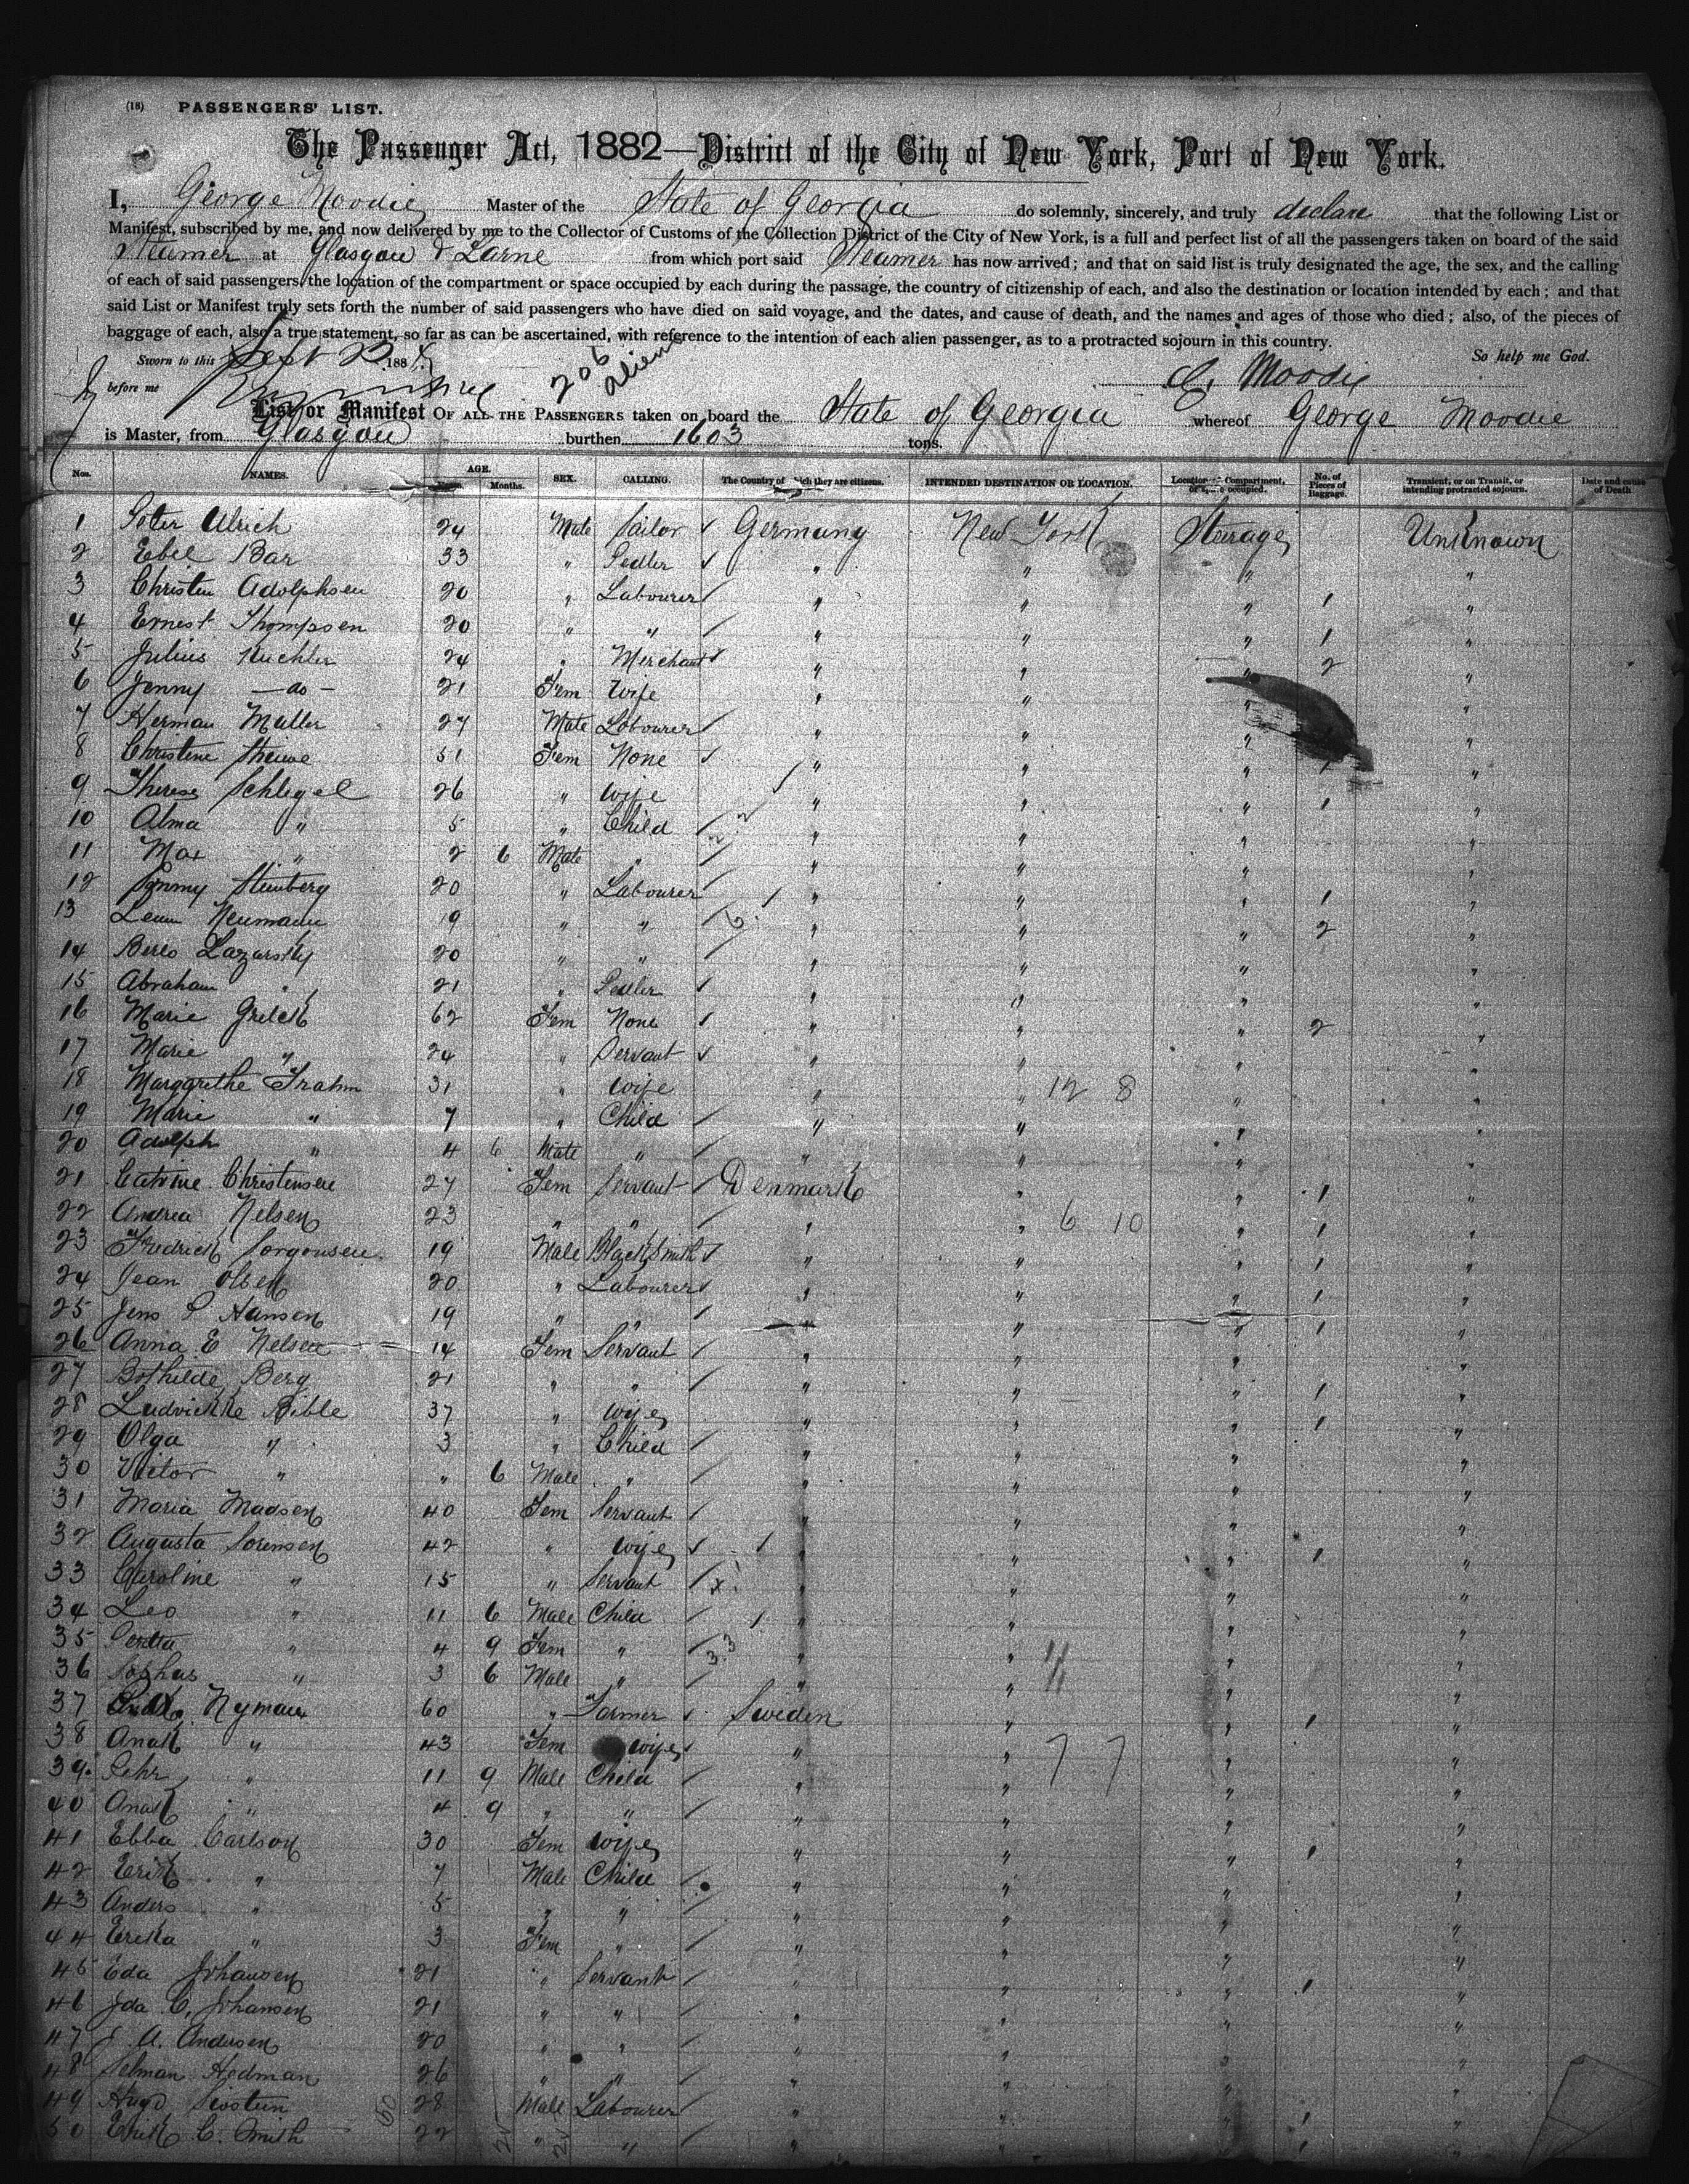 (18) PASSENGERS' LIST.
The Passenger Act, 1882—District of the City of New York, Port of New York.
I, George Moodie Master of the State of Georgia do solemnly, sincerely, and truly declare that the following List or
Manifest, subscribed by me, and now delivered by me to the Collector of Customs of the Collection District of the City of New York, is a full and perfect list of all the passengers taken on board of the said
Steamer at Glasgow & Larne from which port said Steamer has now arrived; and that on said list is truly designated the age, the sex, and the calling
of each of said passengers, the location of the compartment or space occupied by each during the passage, the country of citizenship of each, and also the destination or location intended by each; and that
said List or Manifest truly sets forth the number of said passengers who have died on said voyage, and the dates, and cause of death, and the names and ages of those who died; also, of the pieces of
baggage of each, also a true statement, so far as can be ascertained, with reference to the intention of each alien passenger, as to a protracted sojourn in this country.
Sworn to this Sept 188 So help me God.
before me 206 aliens G. Moodie
List or Manifest OF ALL THE PASSENGERS taken on board the State of Georgia whereof George Moodie
is Master, from Glasgow burthen 1603 tons.
Nos. NAMES. AGE. Years. Months. SEX. CALLING. The Country of which they are citizens. INTENDED DESTINATION OR LOCATION. Location of Compartment, or space occupied. No. of Pieces of Baggage. Transient, or on Transit, or intending protracted sojourn. Date and cause of Death
1 Peter Ulrich 24 Male Sailor Germany New York Steerage Unknown
2 Ebel Bar 33 " Pedler " " " "
3 Christen Adolphsen 20 " Labourer " " " 1 "
4 Ernest Thompsen 20 " " " " " 1 "
5 Julius Kuchler 24 " Merchant " " " 2 "
6 Jenny —do— 21 Fem Wife " " " "
7 Herman Muller 27 Male Labourer " " " "
8 Christine 51 Fem None " " " 1 "
9 Therese Schlegel 26 " Wife " " " 1 "
10 Alma " 5 " Child " " " "
11 Max " 2 6 Male " " " " "
12 Steinberg 20 " Labourer " " " 1 "
13 Neumann 19 " " " " " 2 "
14 Lazarsky 20 " " " " " "
15 Abraham " 21 " Pedler " " " "
16 Marie Grelck 62 Fem None " " " 2 "
17 Marie " 24 " Servant " " " "
18 Margarethe Frahm 31 " Wife " " 12 8 " "
19 Marie " 7 " Child " " " "
20 Adolph " 4 6 Male " " " " "
21 Catrine Christensen 27 Fem Servant Denmark " " 1 "
22 Andrea Nelsen 23 " " " " 6 10 " 1 "
23 Fredrick Sorgonsen 19 Male Blacksmith " " " 1 "
24 Jean Olsen 20 " Labourer " " " 1 "
25 Jens P Hansen 19 " " " " " 1 "
26 Anna E Nelsen 14 Fem Servant " " " "
27 Bothilde Berg 21 " " " " " 1 "
28 Ludvickke Bible 37 " Wife " " " 1 "
29 Olga " 3 " Child " " " "
30 Victor " " 6 Male " " " " "
31 Maria Madsen 40 Fem Servant " " " "
32 Augusta Sorensen 42 " Wife " " " 1 "
33 Caroline " 15 " Servant " " " "
34 Leo " 11 6 Male Child " " " "
35 " 4 9 Fem " " " " "
36 " 3 6 Male " " " " "
37 Nyman 60 " Farmer Sweden " " 1 "
38 " 43 Fem Wife " " 7 7 " "
39 Pehr " 11 9 Male Child " " " "
40 " 4 9 " " " " " "
41 Ebba Carlson 30 Fem Wife " " " 1 "
42 Erik " 7 Male Child " " " "
43 Anders " 5 " " " " " "
44 Erika " 3 Fem " " " " "
45 Eda Johansen 21 " Servant " " " 1 "
46 Ida C. Johansen 21 " " " " " "
47 A. Andersen 20 " " " " " "
48 Selman Hedman 26 " " " " " "
49 Hugo 28 Male Labourer " " " 1 "
50 Erik C. Smith 22 " " " " " 1 "